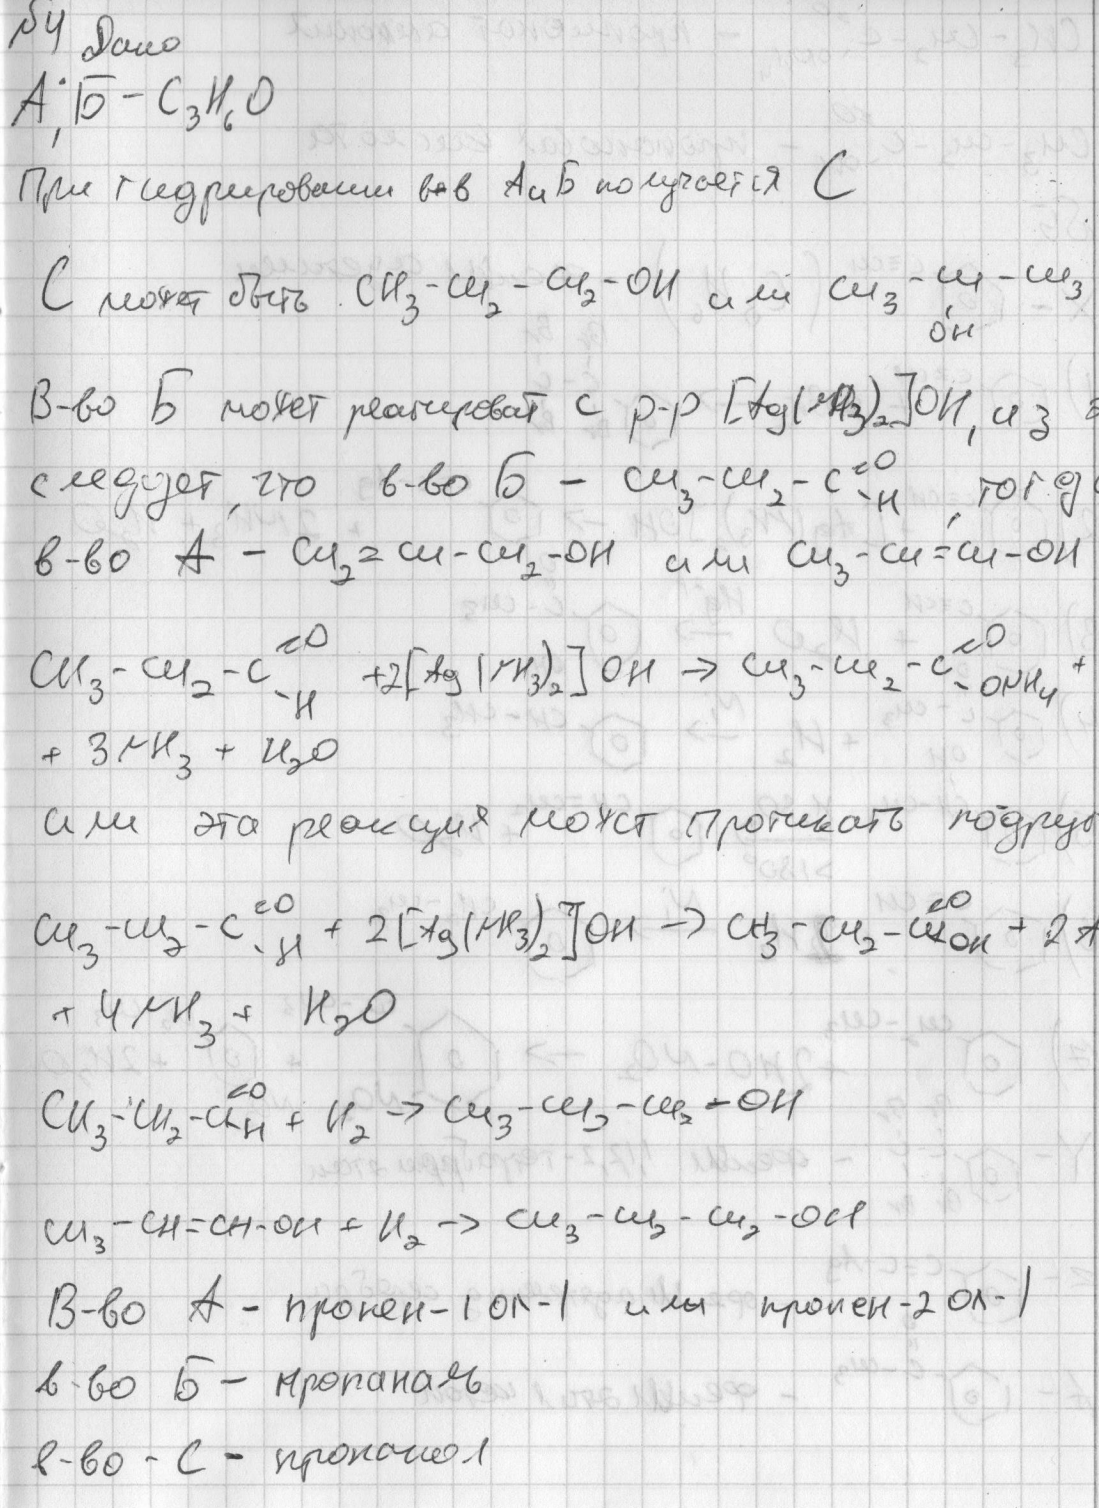 №4 Дано
А, Б – C₃H₆O
При гидрировании в-в А и Б получается C
C может быть CH₃-CH₂-CH₂-OH или CH₃-CH-CH₃
OH
В-во Б может реагироват с р-р [Ag(NH₃)₂]OH, из
следует, что в-во Б – CH₃-CH₂-C=O-H, тогда
в-во А – CH₂=CH-CH₂-OH или CH₃-CH=CH-OH
CH₃-CH₂-C=O-H +2[Ag(NH₃)₂]OH → CH₃-CH₂-C=O-ONH₄ +
+ 3NH₃ + H₂O
или эта реакция может протикать подруг
CH₃-CH₂-C=O-H + 2[Ag(NH₃)₂]OH → CH₃-CH₂-C=O-OH + 2A
+ 4NH₃ + H₂O
CH₃-CH₂-C=O-H + H₂ → CH₃-CH₂-CH₂-OH
CH₃-CH=CH-OH + H₂ → CH₃-CH₂-CH₂-OH
В-во А – пропен-1 ол-1 или пропен-2 ол-1
в-во Б – пропаналь
в-во - C - пропанол